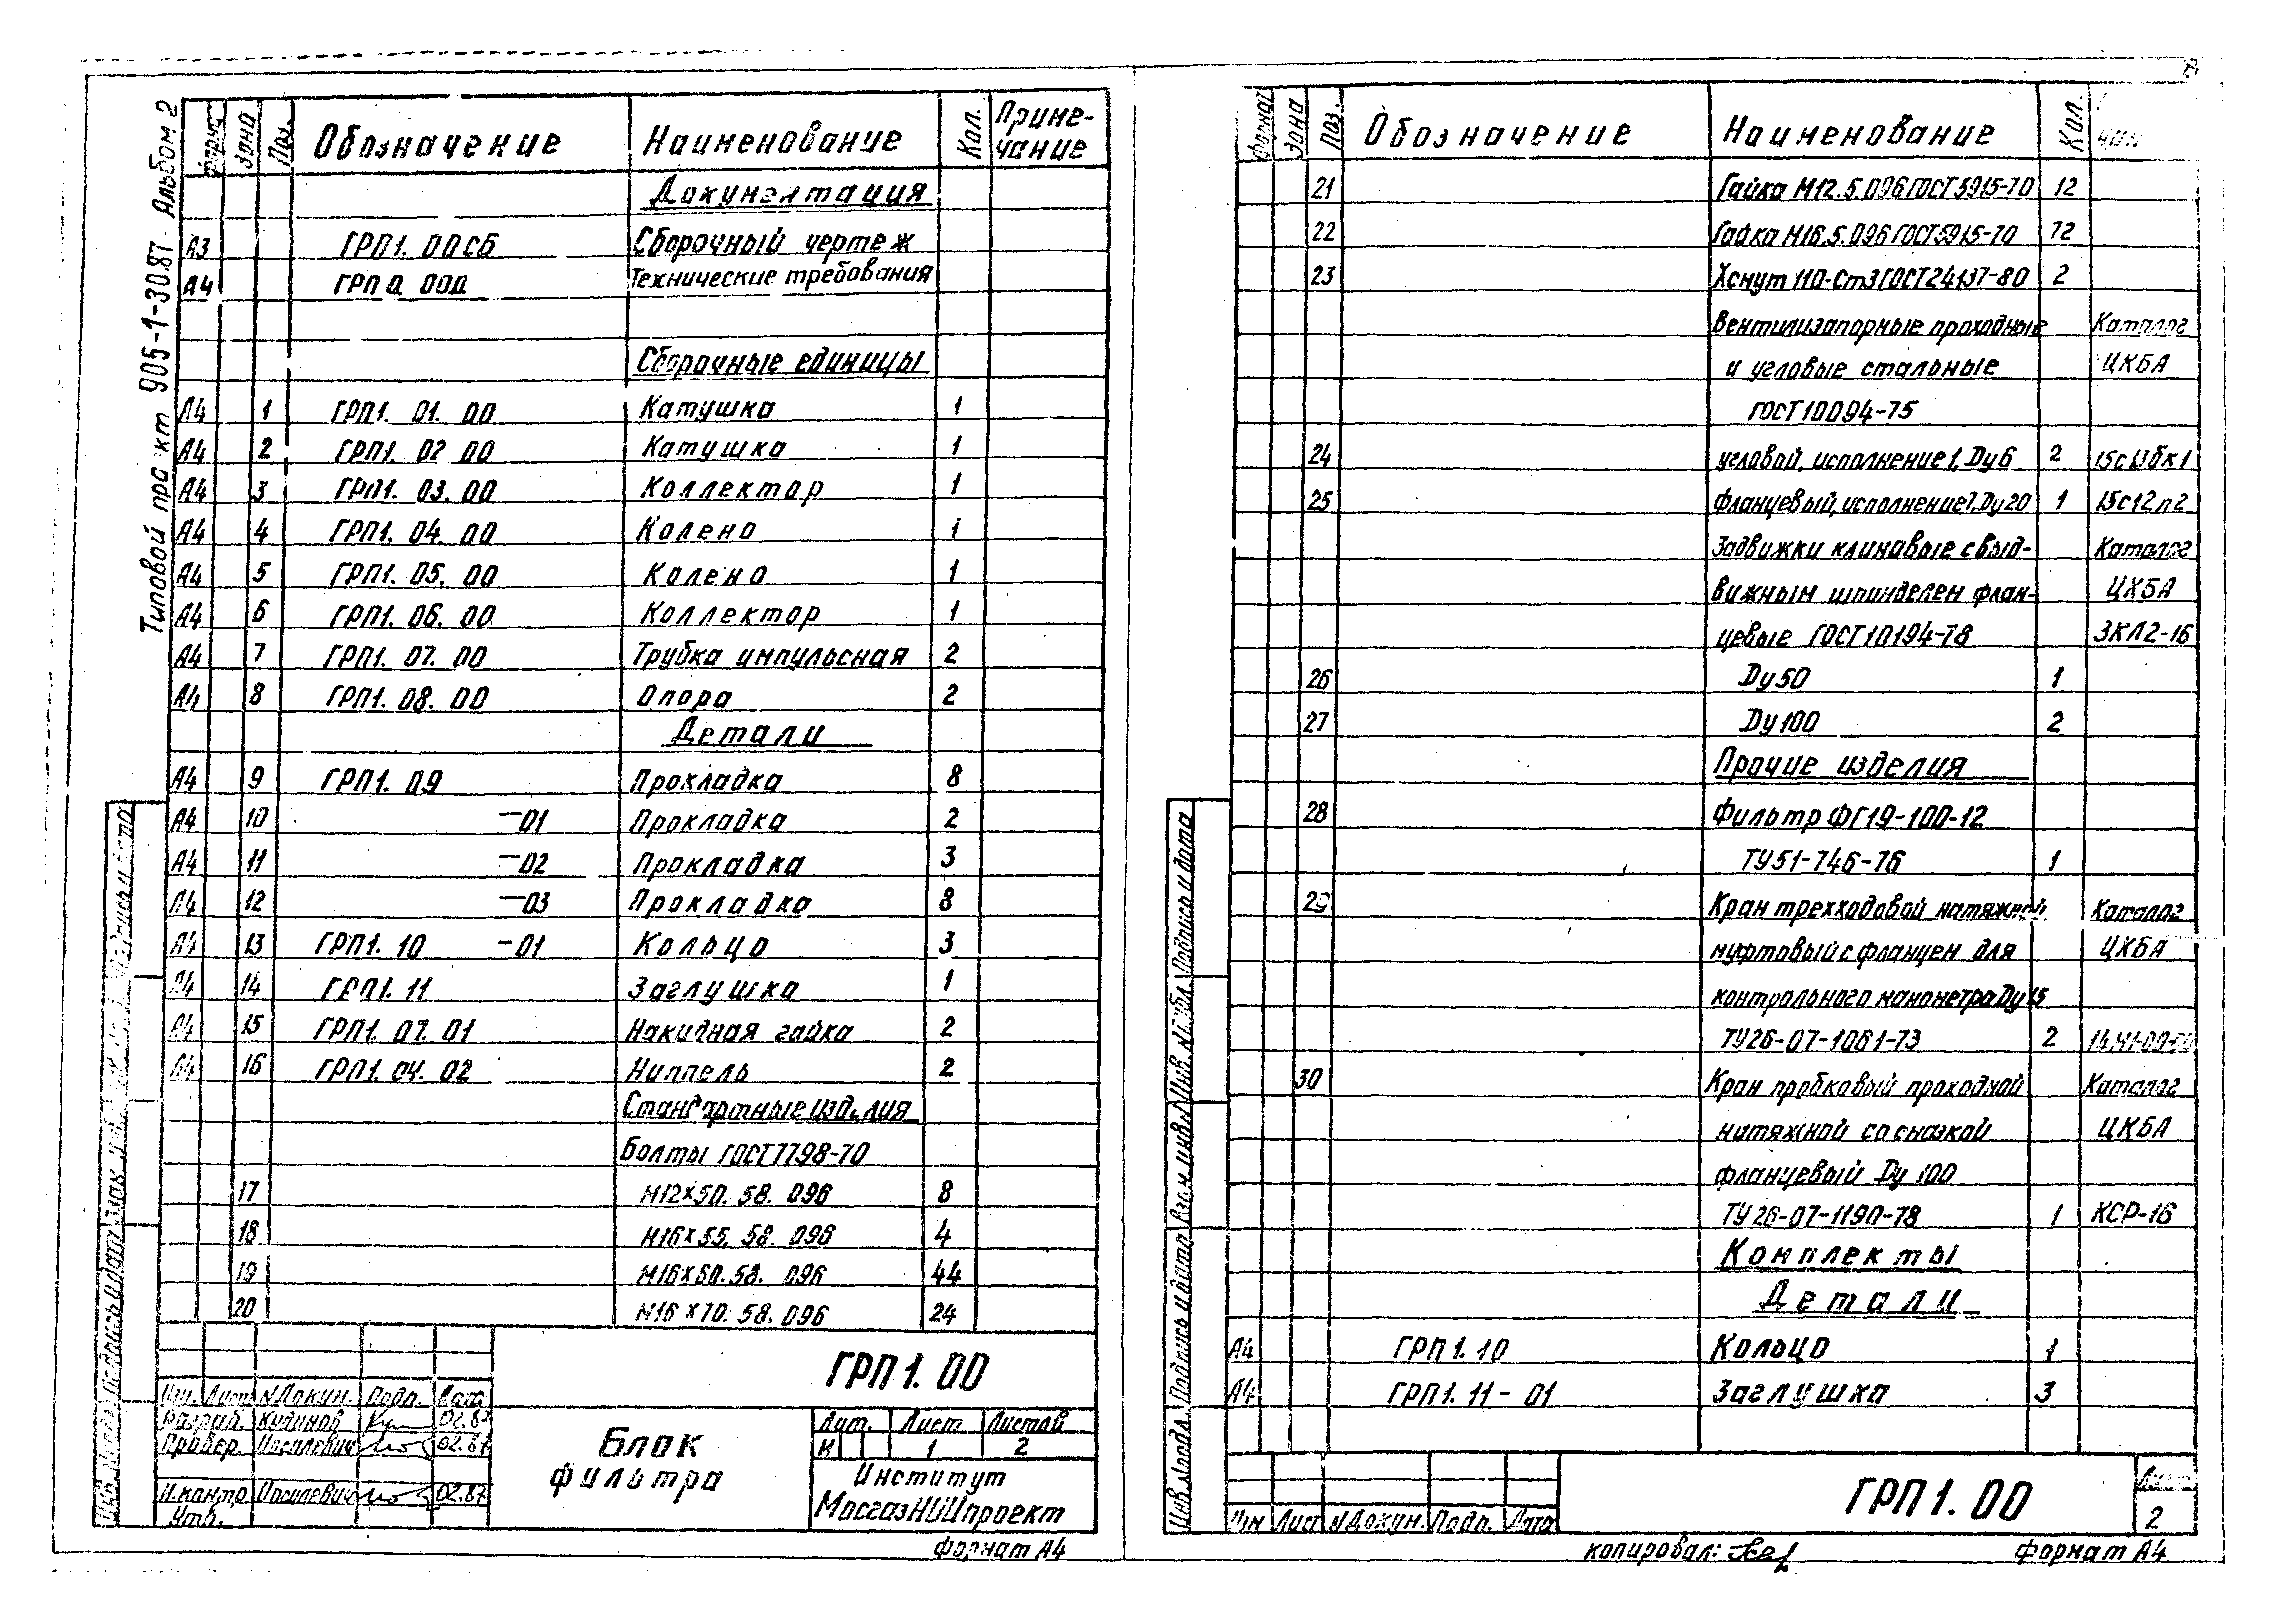 Альбом 2
Типовой про кт 905-1-30.87.
Зона Поз. Обозначение Наименование Кол. Приме-
чание
Документация
А3 ГРП1. 00СБ Сборочный чертеж
А4 ГРП 0. 000 Технические требования
Сборочные единицы
А4 1 ГРП1. 01. 00 Катушка 1
А4 2 ГРП1. 02 00 Катушка 1
А4 3 ГРП1. 03. 00 Коллектор 1
А4 4 ГРП1. 04. 00 Колено 1
А4 5 ГРП1. 05. 00 Колено 1
А4 6 ГРП1. 06. 00 Коллектор 1
А4 7 ГРП1. 07. 00 Трубка импульсная 2
А4 8 ГРП1. 08. 00 Опора 2
Детали
А4 9 ГРП1. 09 Прокладка 8
А4 10 -01 Прокладка 2
А4 11 -02 Прокладка 3
А4 12 -03 Прокладка 8
А4 13 ГРП1. 10 -01 Кольцо 3
А4 14 ГРП1. 11 Заглушка 1
А4 15 ГРП1. 07. 01 Накидная гайка 2
А4 16 ГРП1. 04. 02 Ниппель 2
Стандартные изделия
Болты ГОСТ 7798-70
17 М12×50. 58. 096 8
18 М16×55. 58. 096 4
19 М16×60. 58. 096 44
20 М16×70. 58. 096 24
ГРП1. 00
Изм. Лист №Докум. Подп. Дата
Разраб. Кудинов 02.87
Провер. Насилевич 02.87
Н.контр Насилевич 02.87
Утв.
Блок
фильтра
Лит. Лист Листов
И 1 2
Институт
МосгазНИИпроект
Формат А4
Формат Зона Поз. Обозначение Наименование Кол. чан
21 Гайка М12.5.096 ГОСТ5915-70 12
22 Гайка М16.5.096 ГОСТ5915-70 72
23 Хомут 110-Ст3 ГОСТ 24137-80 2
Вентили запорные проходные Каталог
и угловые стальные ЦКБА
ГОСТ 10094-75
24 угловой, исполнение 1, Dу6 2 15с13бк1
25 фланцевый, исполнение 1, Dу20 1 15с12п2
Задвижки клиновые с выд- Каталог
вижным шпинделем флан- ЦКБА
цевые ГОСТ 10194-78 ЗКЛ2-16
26 Dу50 1
27 Dу100 2
Прочие изделия
28 Фильтр ФГ19-100-12
ТУ51-746-76 1
29 Кран трехходовой натяжной Каталог
муфтовый с фланцем для ЦКБА
контрольного манометра Dу15
ТУ26-07-1061-73 2 14М1-00-00
30 Кран пробковый проходной Каталог
натяжной со смазкой ЦКБА
фланцевый Dу 100
ТУ 26-07-1190-78 1 КСР-16
Комплекты
Детали
А4 ГРП1. 10 Кольцо 1
А4 ГРП1. 11-01 Заглушка 3
Инв.№подл. Подпись и дата Взам.инв.№ Инв.№дубл. Подпись и дата
Изм Лист №Докум. Подп. Дата
ГРП1. 00
Лист
2
копировал:
Формат А4